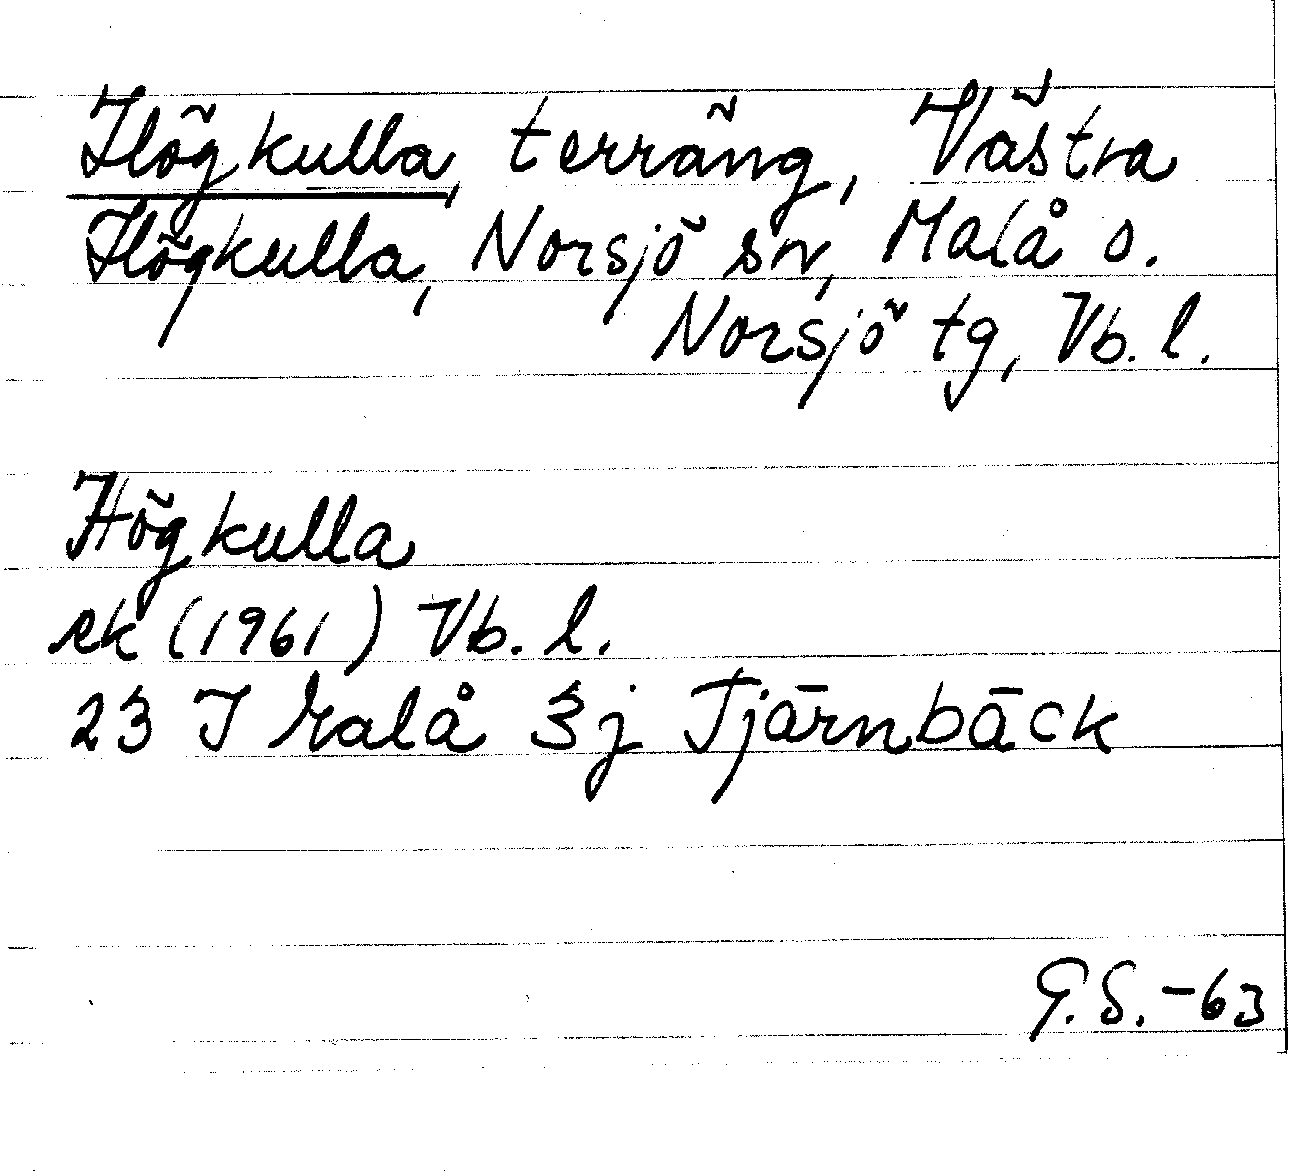 Högkulla, terräng, Västra
Högkulla, Norsjö sn, Malå o.
Norsjö tg, Vb. l.
Högkulla
ek (1961) Vb. l.
23 I Malå 3j Tjärnbäck
G.S. -63